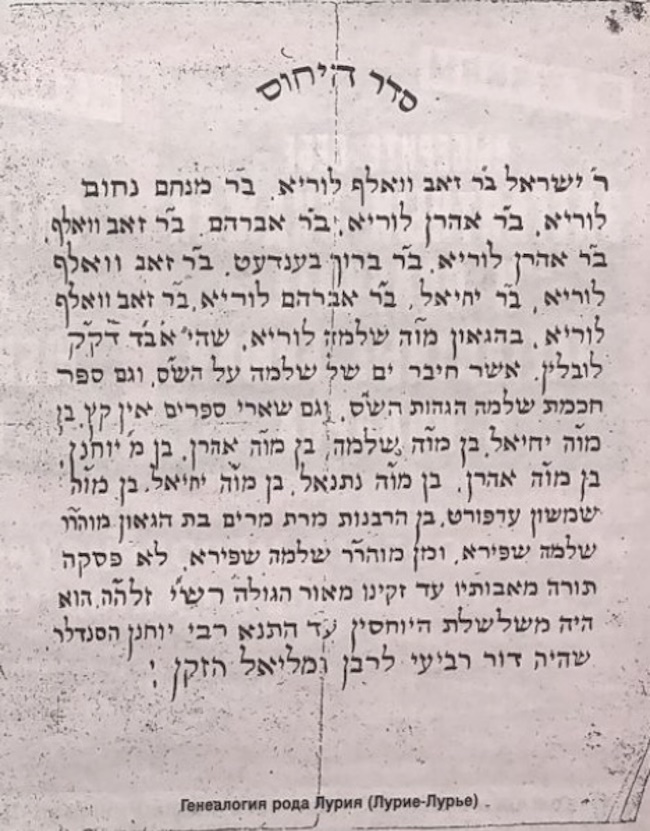 סדר היחוס
ר' ישראל ב"ר זאב וואלף לוריא. ב"ר מנחם נחום
לוריא. ב"ר אהרן לוריא. ב"ר אברהם. ב"ר זאב וואלף
ב"ר אהרן לוריא. ב"ר ברוך בענדעט. ב"ר זאב וואלף
לוריא. ב"ר יחיאל. ב"ר אברהם לוריא. ב"ר זאב וואלף
לוריא. בהגאון מו"ה שלמה לוריא. שהי' אב"ד דק"ק
לובלין. אשר חיבר ים של שלמה על הש"ס. וגם ספר
חכמת שלמה הגהות הש"ס. וגם שארי ספרים אין קץ. בן
מו"ה יחיאל. בן מו"ה שלמה. בן מו"ה אהרן. בן מ' יוחנן.
בן מו"ה אהרן. בן מו"ה נתנאל. בן מו"ה יחיאל. בן מו"ה
שמשון ערפורט. בן הרבנות מרת מרים בת הגאון מוהרר
שלמה שפירא. ומן מוהר"ר שלמה שפירא. לא פסקה
תורה מאבותיו עד זקינו מאור הגולה רש"י זלה"ה. הוא
היה משלשלת היוחסין עד התנא רבי יוחנן הסנדלר
שהיה דור רביעי לרבן גמליאל הזקן :
Генеалогия рода Лурия (Лурие-Лурье)